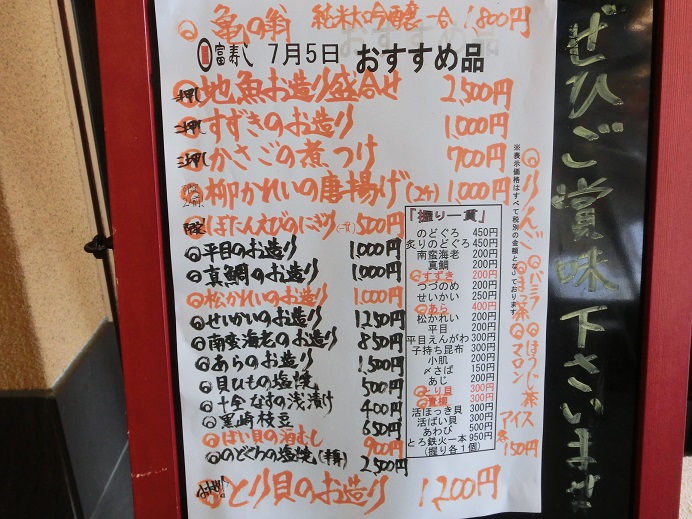 亀の翁 純米大吟醸 一合 1,800円
富寿し 7月5日 おすすめ品
一押し 地魚お造り盛合せ 2,500円
二押し すずきのお造り 1,000円
三押し かさごの煮つけ 700円
柳かれいの唐揚げ(2ケ) 1,000円
ぼたんえびのにぎり(一貫) 500円
平目のお造り 1,000円
真鯛のお造り 1,000円
松かれいのお造り 1,000円
せいかいのお造り 1,250円
南蛮海老のお造り 850円
あらのお造り 1,500円
貝ひもの塩焼 500円
十全なすの浅漬け 400円
黒崎枝豆 650円
ばい貝の酒むし 900円
のどぐろの塩焼(半身) 2,500円
とり貝のお造り 1,200円
『握り一貫』
のどぐろ 450円
炙りのどぐろ 450円
南蛮海老 200円
真鯛 200円
すずき 200円
つづのめ 200円
せいかい 250円
あら 400円
松かれい 200円
平目 200円
平目えんがわ 300円
子持ち昆布 300円
小肌 200円
〆さば 150円
あじ 200円
とり貝 300円
青柳 300円
活ほっき貝 300円
活ばい貝 300円
あわび 500円
とろ鉄火一本 950円
(握り各1個)
※表示価格はすべて税別の金額となっております。
りんご
バニラ
まっ茶
ほうじ茶
マロン
アイス
各150円
ぜひご賞味下さいませ